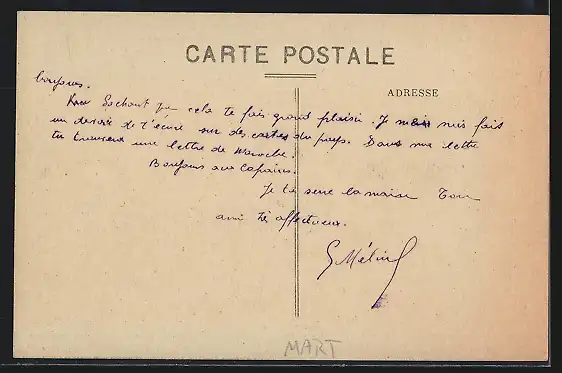 CARTE POSTALE
ADRESSE
toujours.
Sachant que cela te fais grand plaisir. Je me suis fait
un devoir de t'écrire sur des cartes du pays. Dans ma lettre
tu trouveras une lettre de
Bonjours aux Copains.
Je te serre la main Ton
ami affectueux.
G Mélin
MART